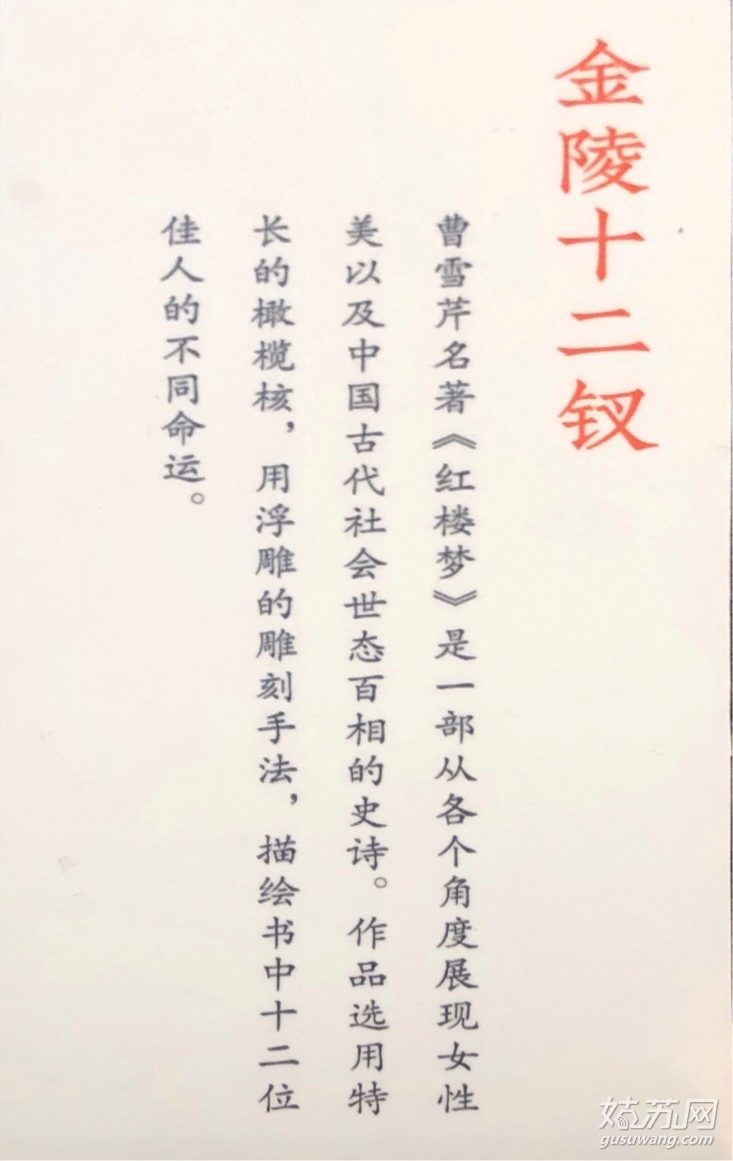 金陵十二钗
曹雪芹名著《红楼梦》是一部从各个角度展现女性
美以及中国古代社会世态百相的史诗。作品选用特
长的橄榄核，用浮雕的雕刻手法，描绘书中十二位
佳人的不同命运。
姑苏网
gusuwang.com